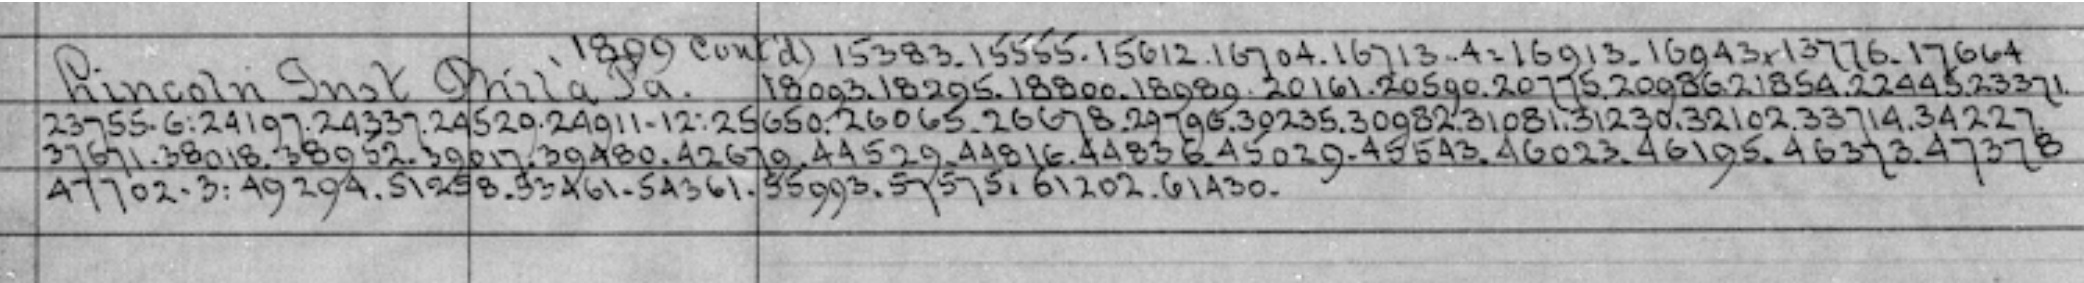 1899 cont'd) 15383.15555.15612.16704.16713.4=16913.16943x13776.17664
Lincoln Inst Phila Pa. 18093.18295.18800.18989.20161.20590.20775.20986.21854.22445.23371.
23755-6:24197.24337.24529.24911-12:25650.26065.26678.29796.30235.30982.31081.31230.32102.33714.34227.
37671.38018.38952.39017.39480.42679.44529.44816.44836.45029.45543.46023.46195.46373.47378
47702-3:49294.51258.53461-54361.55993.57575.61202.61430.